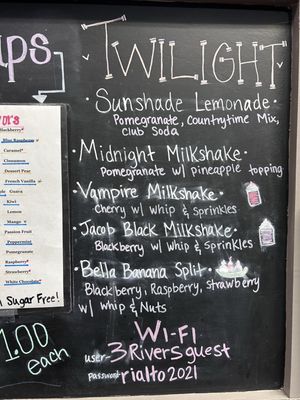 ps
TWILIGHT
· Sunshade Lemonade ·
Pomegranate, Countrytime Mix,
club Soda
· Midnight Milkshake ·
Pomegranate w/ pineapple topping
· Vampire Milkshake ·
Cherry w/ whip & sprinkles
· Jacob Black Milkshake ·
Blackberry w/ whip & sprinkles
· Bella Banana Split ·
Blackberry, Raspberry, Strawberry
w/ whip & Nuts
Wi-Fi
user- 3Riversguest
password- rialto2021
Blackberry*
Blue Raspberry
Caramel*
Cinnamon
Dessert Pear
French Vanilla
Guava
Kiwi
Lemon
Mango
Passion Fruit
Peppermint
Pomegranate
Raspberry*
Strawberry*
White Chocolate*
Sugar Free!
1.00
each